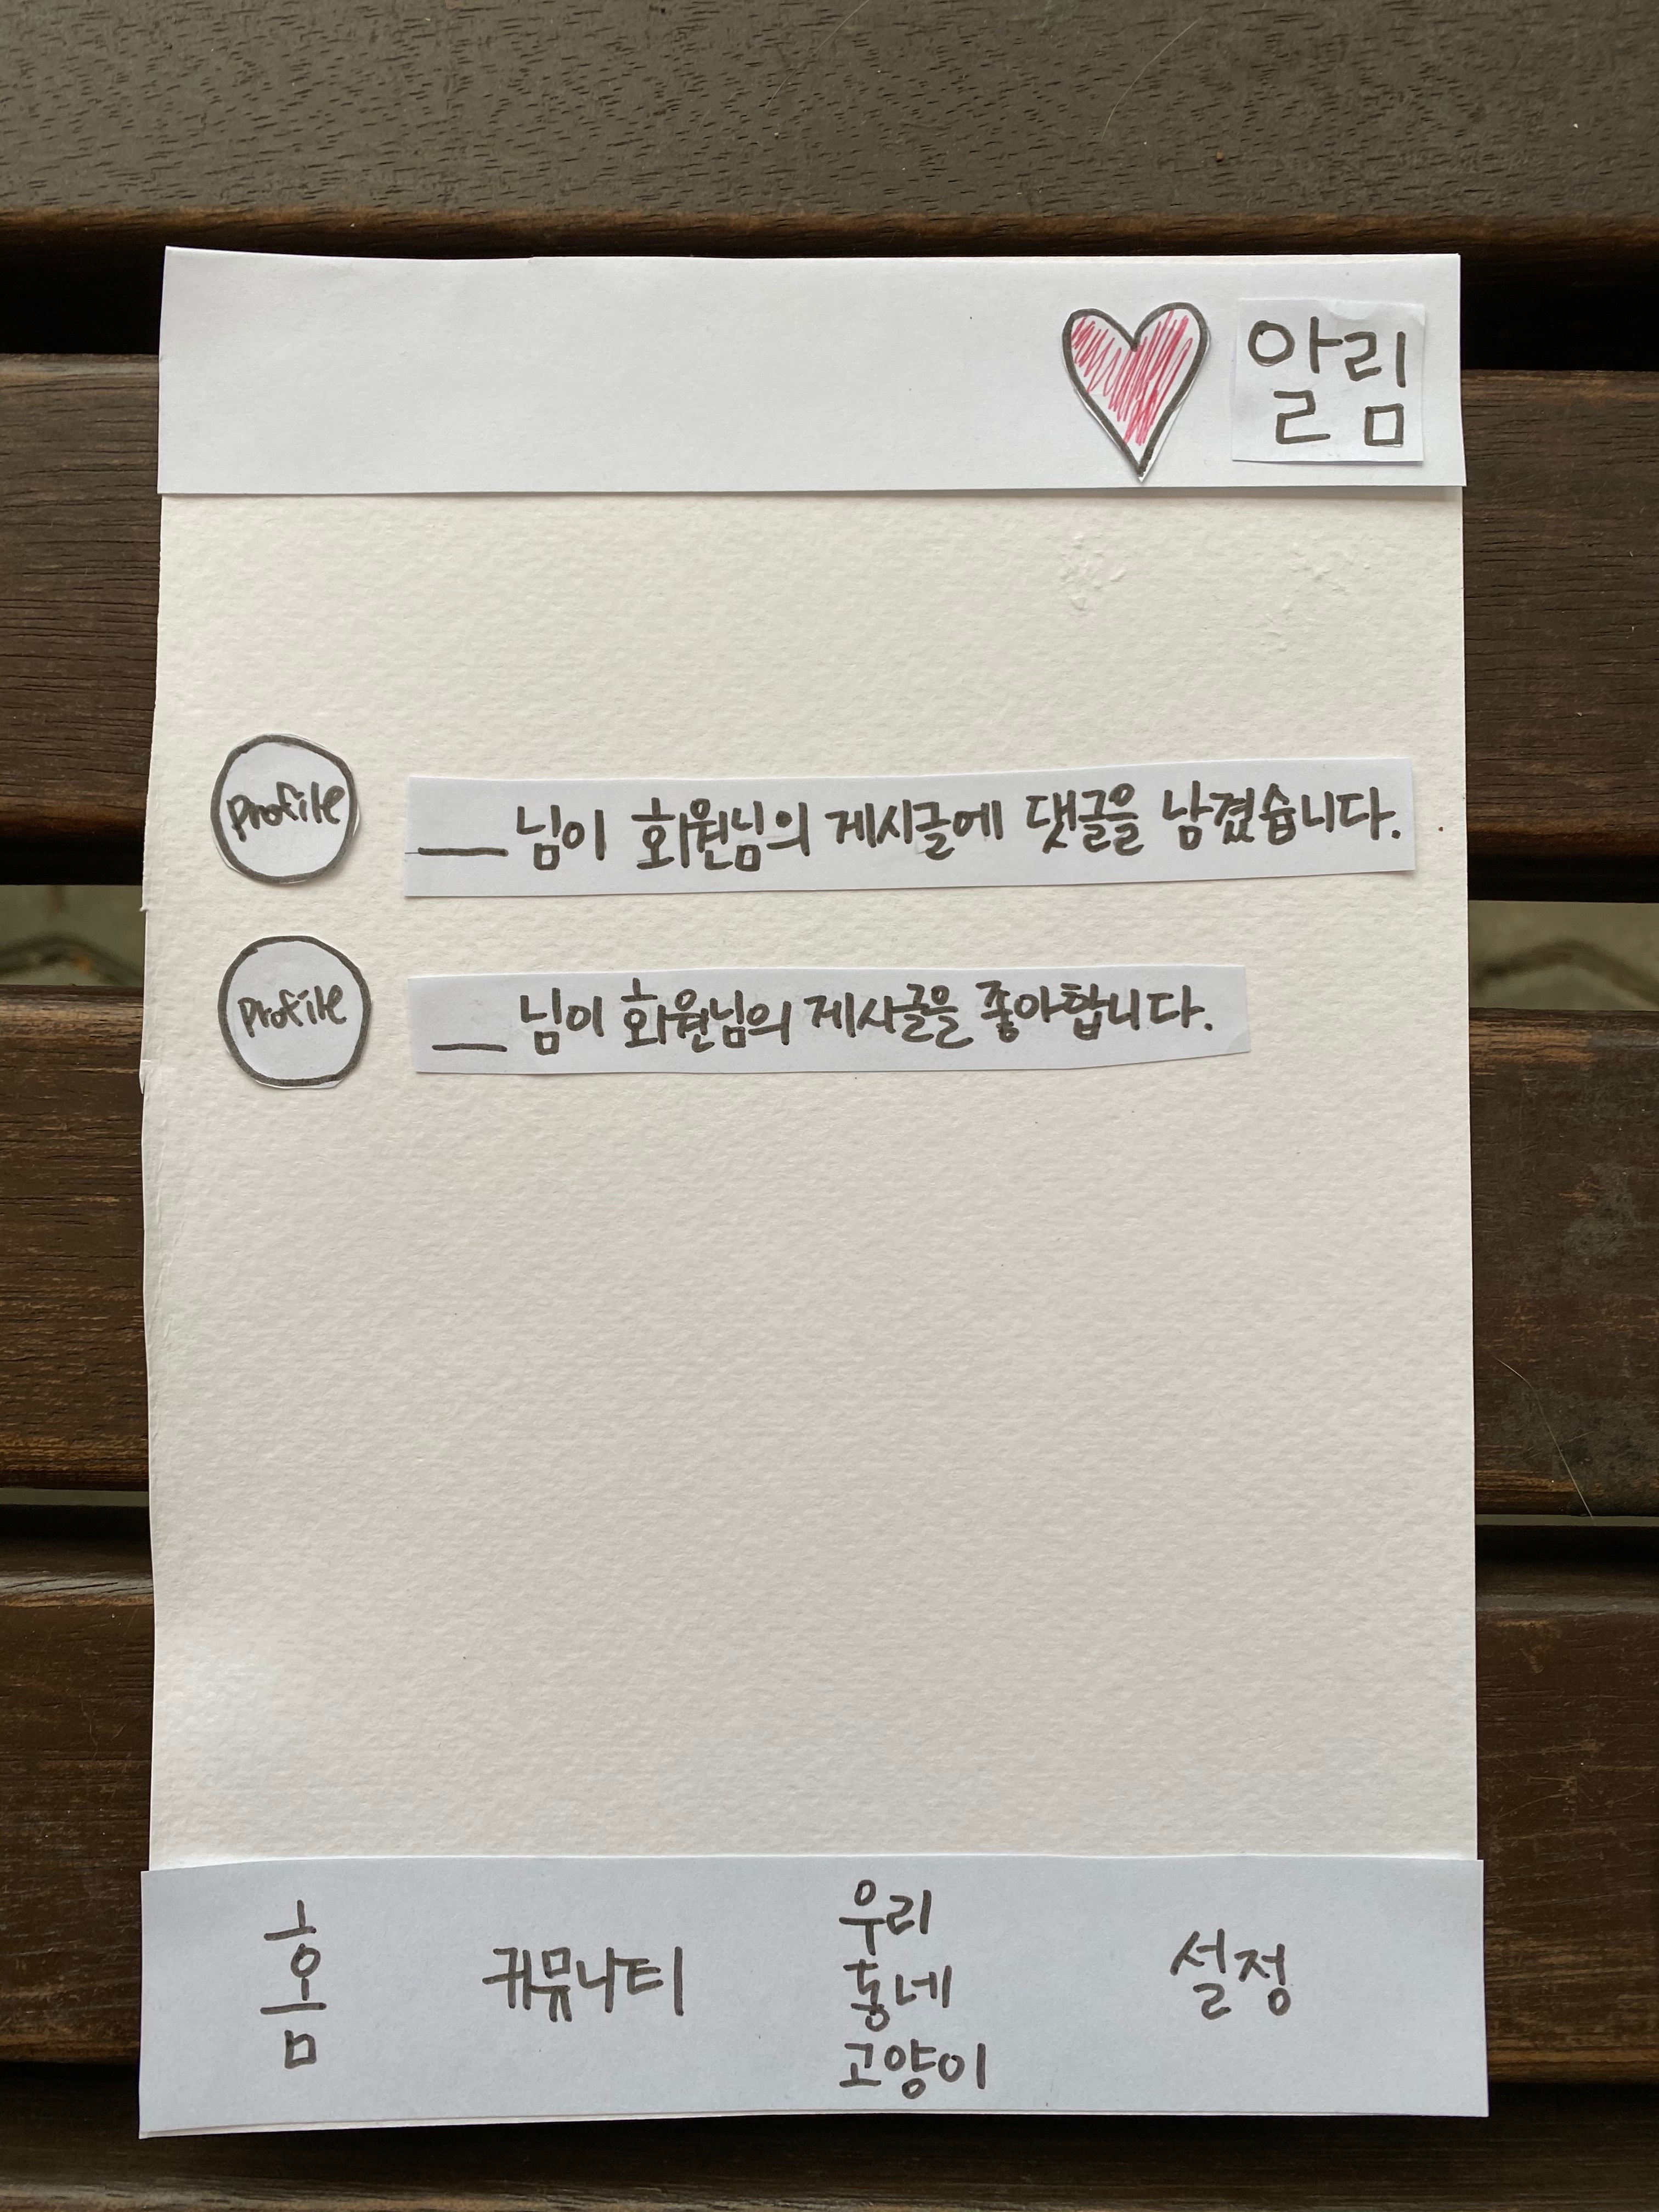 알림
Profile
__님이 회원님의 게시글에 댓글을 남겼습니다.
Profile
__님이 회원님의 게시글을 좋아합니다.
홈
커뮤니티
우리
동네
고양이
설정